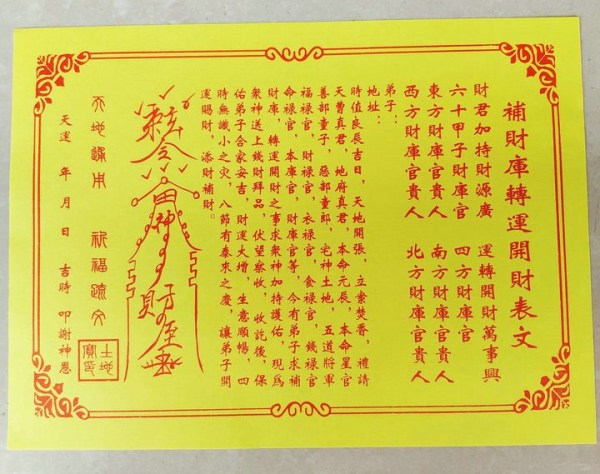 補財庫轉運開財表文
財君加持財源廣 運轉開財萬事興
六十甲子財庫官 四方財庫官
東方財庫官貴人 南方財庫官貴人
西方財庫官貴人 北方財庫官貴人
弟子：
地址：
時值良辰吉日，天地開張，立案焚香，禮請
天曹真君，地府真君，本命元辰，本命星官
善部童子，惡部童郎，宅神土地，五道將軍
福祿官，財祿官，衣祿官，食祿官，錢祿官
命祿官，本庫官，財庫官等，今有弟子求補
財庫，轉運開財之事求衆神加持護佑，現為
衆神送上錢財拜品，伏望察收，收訖後，保
佑弟子合家安吉，財運大增，生意順暢，四
時無識小之灾，八節有泰來之慶，讓弟子開
運賜財，添財補財。
天地通用 祝福疏文
天運 年 月 日 吉時 叩謝神恩
土地寶印